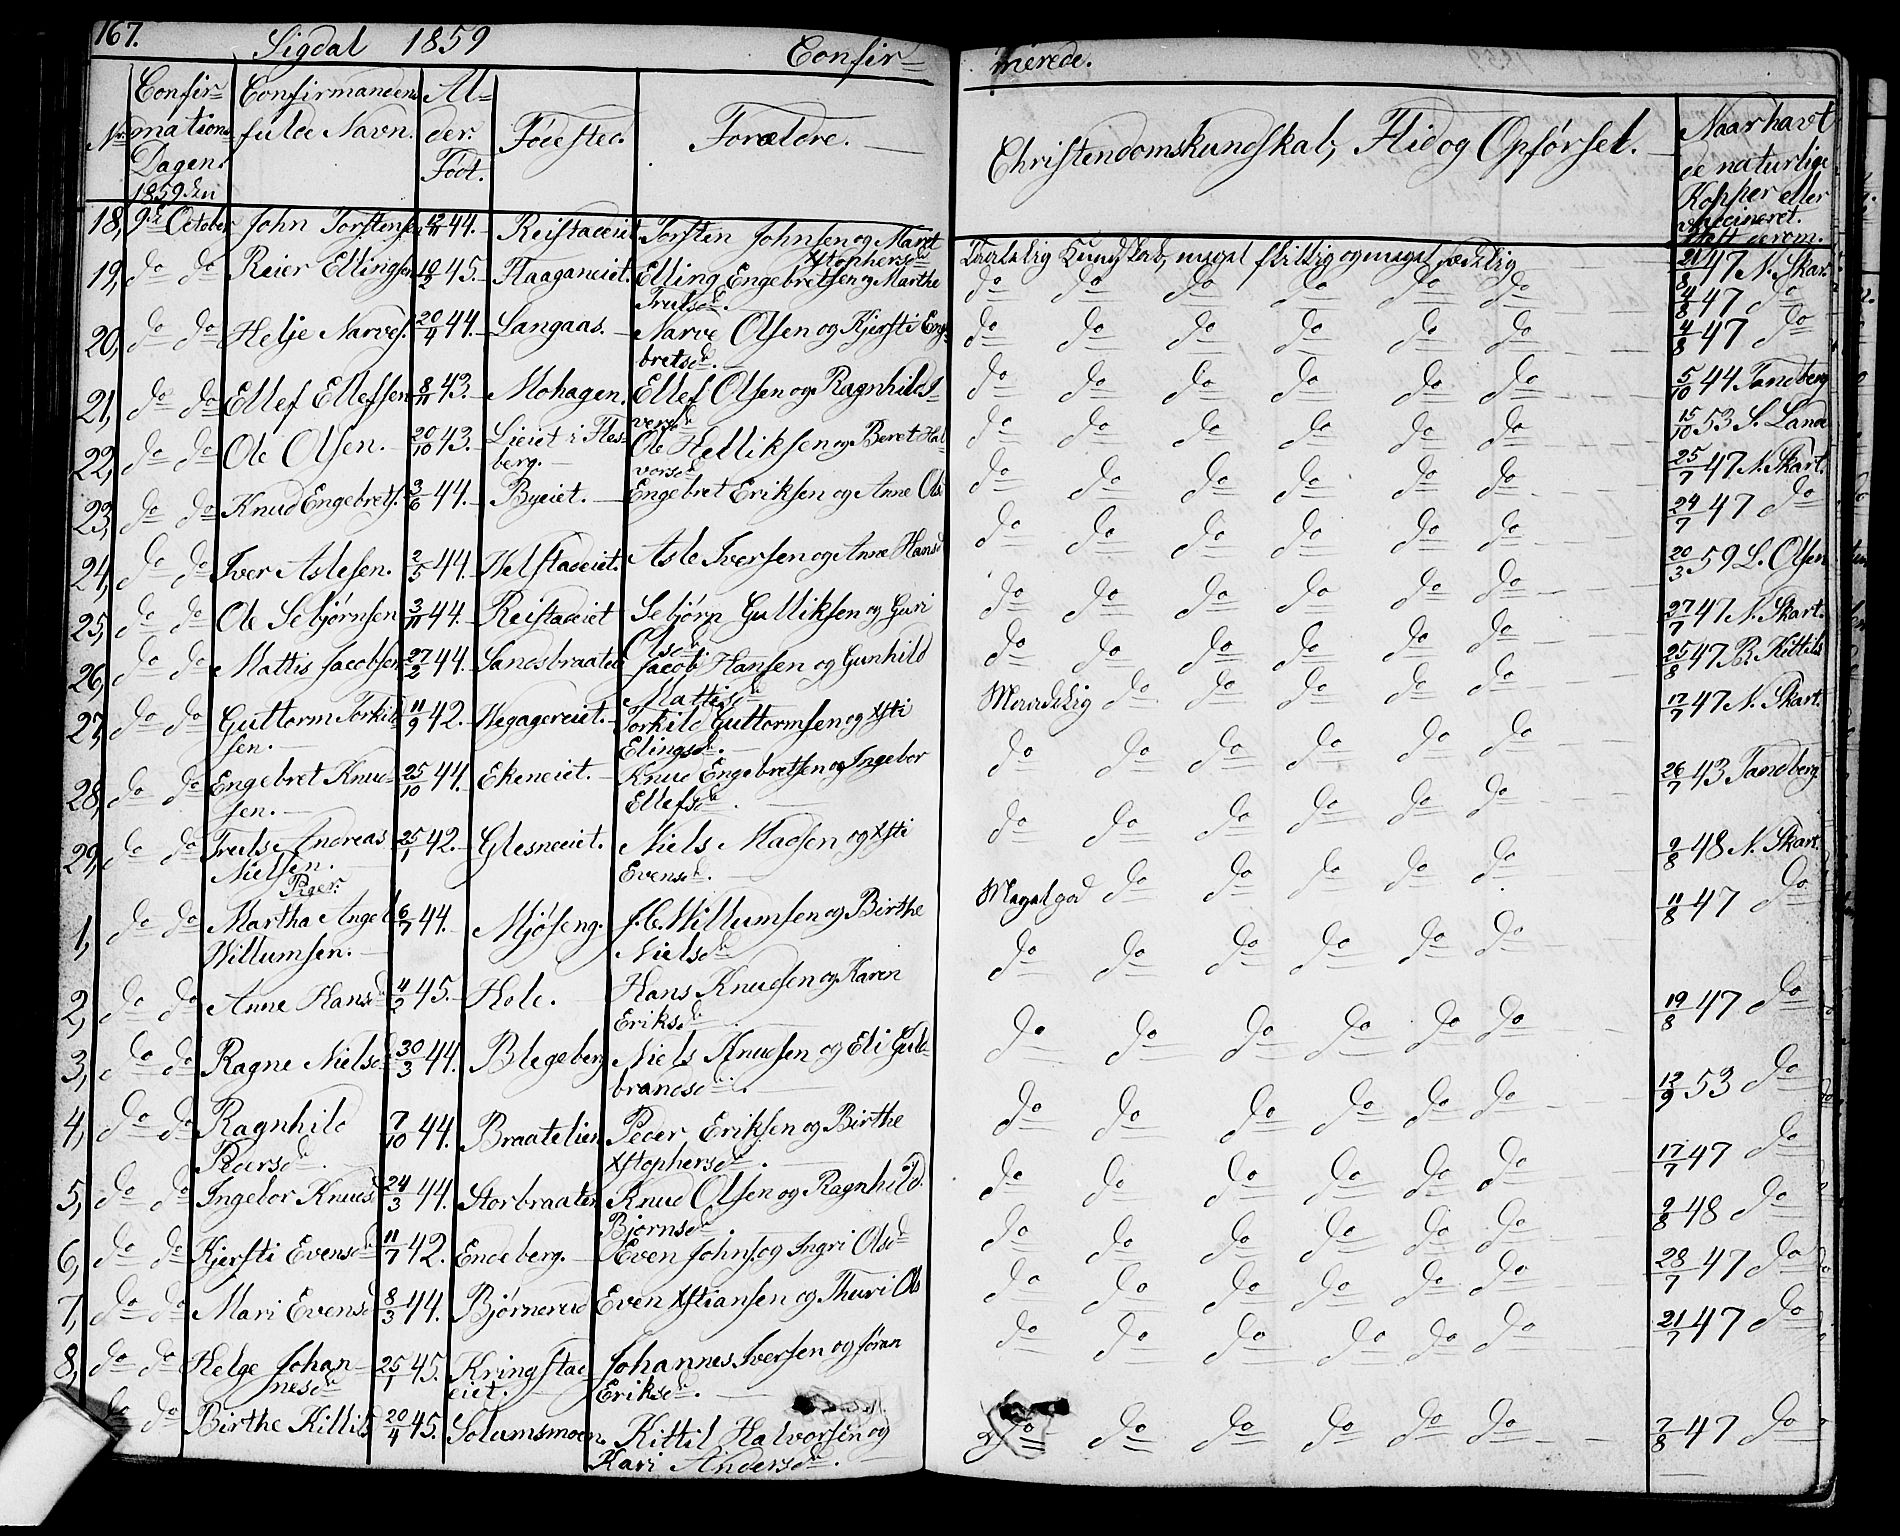 167.
Sigdal 1859 Confir-
merede.
Nr. Confir-mations Dagen. 1859 den
Confirmandens fulde Navn.
Al-der. Født.
Fødested.
Forældre.
Christendomskundskab, Flid og Opførsel.
Naar havt de naturlige Kopper eller vaccineret.
18, 9de October John Torstensen 44. Reistadeiet Torsten Johnsen og Maret Xstophersd. Kundskab, meget flittig og meget sædelig 21/8 47 N. Skart
19, do do Reier Ellingsen 45. Haaganeiet. Elling Engebretsen og Marthe Trulsd. do do do do do do 4/8 47 do
20, do do Helje Narves. 20/4 44. Langaas. Narve Olsen og Kjersti Engebretsd. do do do do do do 4/8 47 do
21, do do Ellef Ellefsen 8/11 43. Mohagen. Ellef Olsen og Ragnhild I-versd. do do do do do do 5/10 44 Tandberg
22, do do Ole Olsen. 20/10 43. Lieiet i Fles-berg. Ole Helliksen og Beret Hal-vorsd. do do do do do do 15/10 53 S. Lande
23, do do Knud Engebrets. 3/6 44. Byeiet. Engebret Eriksen og Anne Ols do do do do do do 25/7 47 N. Skart.
24, do do Iver Aslesen. 2/5 44. Helstadeiet. Asle Iversen og Anne Hansd do do do do do do 24/7 47 do
25, do do Ole Sebjørnsen 3/11 44. Reistadeiet Sebjørn Gulliksen og Guri Olsd. do do do do do do 20/3 59 L. Olsen
26, do do Mattis Jacobsen 27/2 44. Sandsbraaten Jacob Hansen og Gunhild Mattisd. do do do do do do 27/7 47 N. Skart.
27, do do Guttorm Torkild-sen. 11/9 42. Hegagereiet. Torkild Guttormsen og Xsti Elingsd. Maadelig do do do do do 25/8 47 B. Kittils
28, do do Engebret Knud-sen. 25/10 44. Ekeneiet. Knud Engebretsen og Ingebor Ellefsd. do do do do do do 17/7 47 N. Skart.
29, do do Truls Andreas Nielsen. 25/1 42. Glesneeiet. Niels Madsen og Xsti Evensd. do do do do do do 26/7 43 Tandberg
Piger.
1, do do Martha Angel Willumsen. 6/7 44. Mjøseng. J. C. Willumsen og Birthe Nielsd. Meget god do do do do do 9/8 48 N. Skart.
2, do do Anne Hansd 4/2 45. Hole. Hans Knudsen og Karen Eriksd. do do do do do do 11/8 47 do
3, do do Ragne Nielsd 30/3 44. Blegeberg Niels Knudsen og Eli Guld-brandsd. do do do do do do 19/8 47 do
4, do do Ragnhild Pedersd. 7/10 44. Braatelien Peder Eriksen og Birthe Xstophersd. do do do do do do 12/9 53 do
5, do do Ingebor Knudsd 24/3 44. Storbraaten Knud Olsen og Ragnhild Bjørnsd. do do do do do do 17/7 47 do
6, do do Kjersti Evensd 11/7 42. Endeberg. Even Johns. og Ingri Olsd do do do do do do 9/8 48 do
7, do do Mari Evensd 8/3 44. Bjørnerud Even Xstiansen og Thuri Ols do do do do do do 28/7 47 do
8, do do Helge Johan-nesd 25/1 45. Kringstad eiet. Johannes Iversen og Jøran Eriksd. do do do do do do 21/7 47 do
do do Birthe Kittils 20/4 45. Solumsmoen. Kittil Halvorsen og Kari Andersd. do do do do do do 7/8 47 do